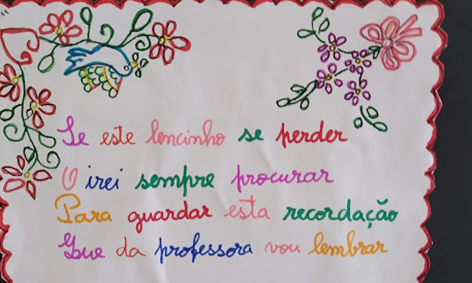 Se este lencinho se perder
O irei sempre procurar
Para guardar esta recordação
Que da professora vou lembrar